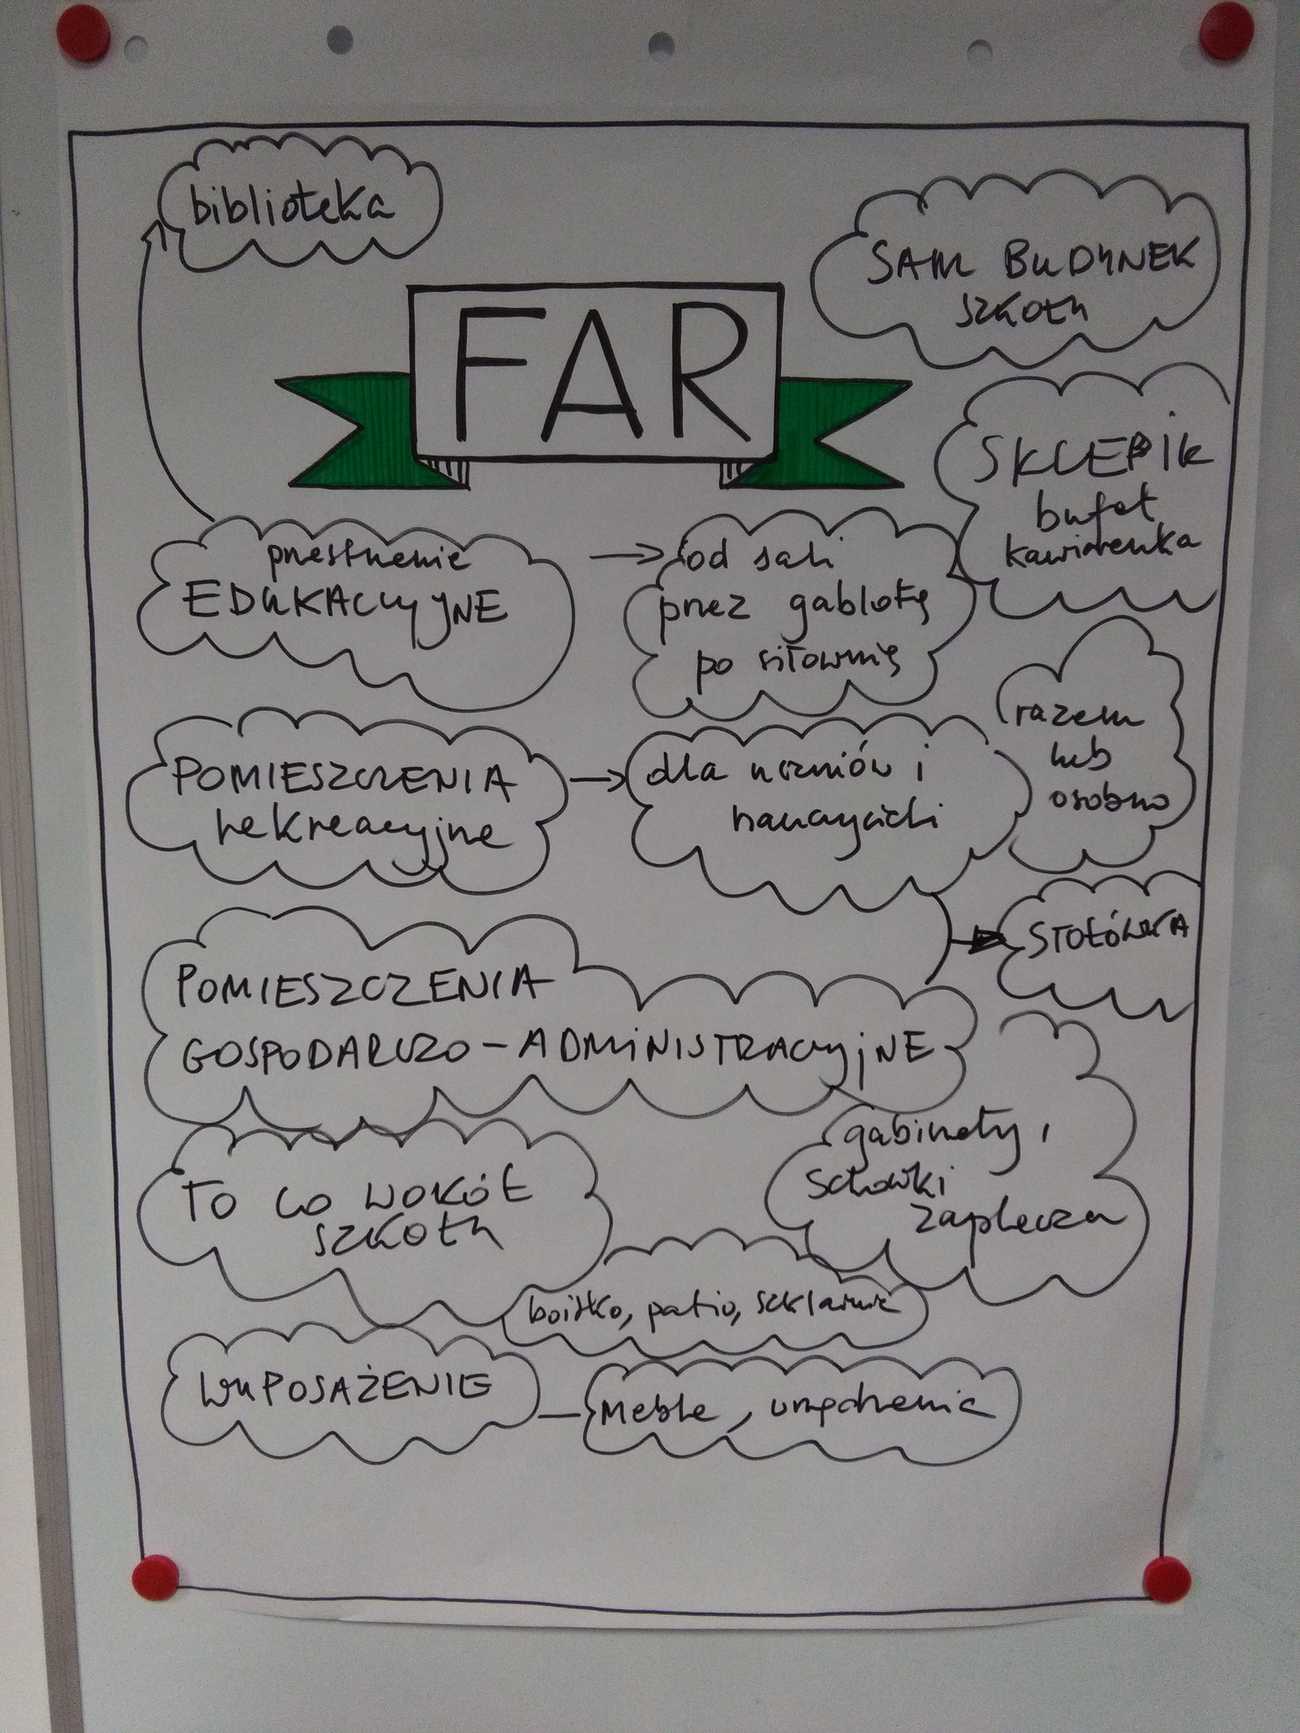 biblioteka
SAM BUDYNEK
szkoły
FAR
SKLEPIK
bufet
kawiarenka
przestrzenie
EDUKACYJNE
od sali
przez gablotę
po siłownię
POMIESZCZENIA
rekreacyjne
dla uczniów i
nauczycieli
razem
lub
osobno
STOŁÓWKA
POMIESZCZENIA
GOSPODARCZO-ADMINISTRACYJNE
gabinety,
schowki
zaplecza
TO CO WOKÓŁ
SZKOŁY
boisko, patio, szklarnie
WYPOSAŻENIE
Meble, urządzenia